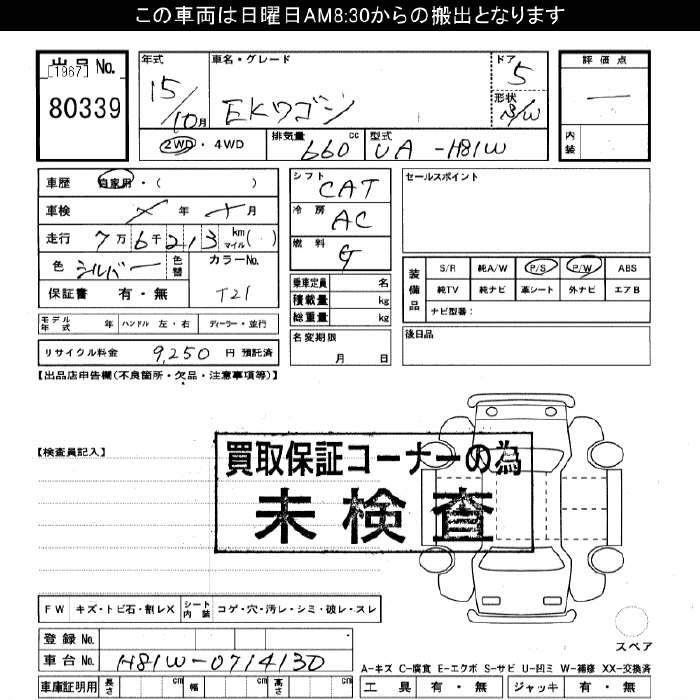 この車両は日曜日AM8:30からの搬出となります
出品No.
[1967]
80339
年式
15/10月
車名・グレード
EKワゴン
ドア
5
形状
S/W
評価点
―
内装
2WD・4WD
排気量 660 cc
型式 UA-H81W
車歴 自家用・( )
車検 年 月
走行 7万6千213 km マイル( )
色 シルバー 色替
カラーNo.
T21
保証書 有・無
シフト CAT
冷房 AC
燃料 G
乗車定員 名
積載量 kg
総重量 kg
セールスポイント
装備品
S/R 純A/W P/S P/W ABS
純TV 純ナビ 革シート 外ナビ エアB
ナビ型番:
モデル年式 年 ハンドル 左・右 ディーラー・並行
リサイクル料金 9,250 円 預託済
名変期限
月 日
後日品
【出品店申告欄(不良箇所・欠品・注意事項等)】
【検査員記入】
買取保証コーナーの為
未検査
FW キズ・トビ石・割レX シート内装 コゲ・穴・汚レ・シミ・破レ・スレ
スペア
登録No.
車台No. H81W-0714130
A-キズ C-腐食 E-エクボ S-サビ U-凹ミ W-補修 XX-交換済
車庫証明用 長さ cm 幅 cm 高さ cm
工具 有・無 ジャッキ 有・無